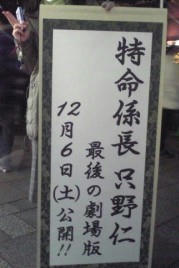 特命係長 只野仁
最後の劇場版
12月6日(土)公開!!